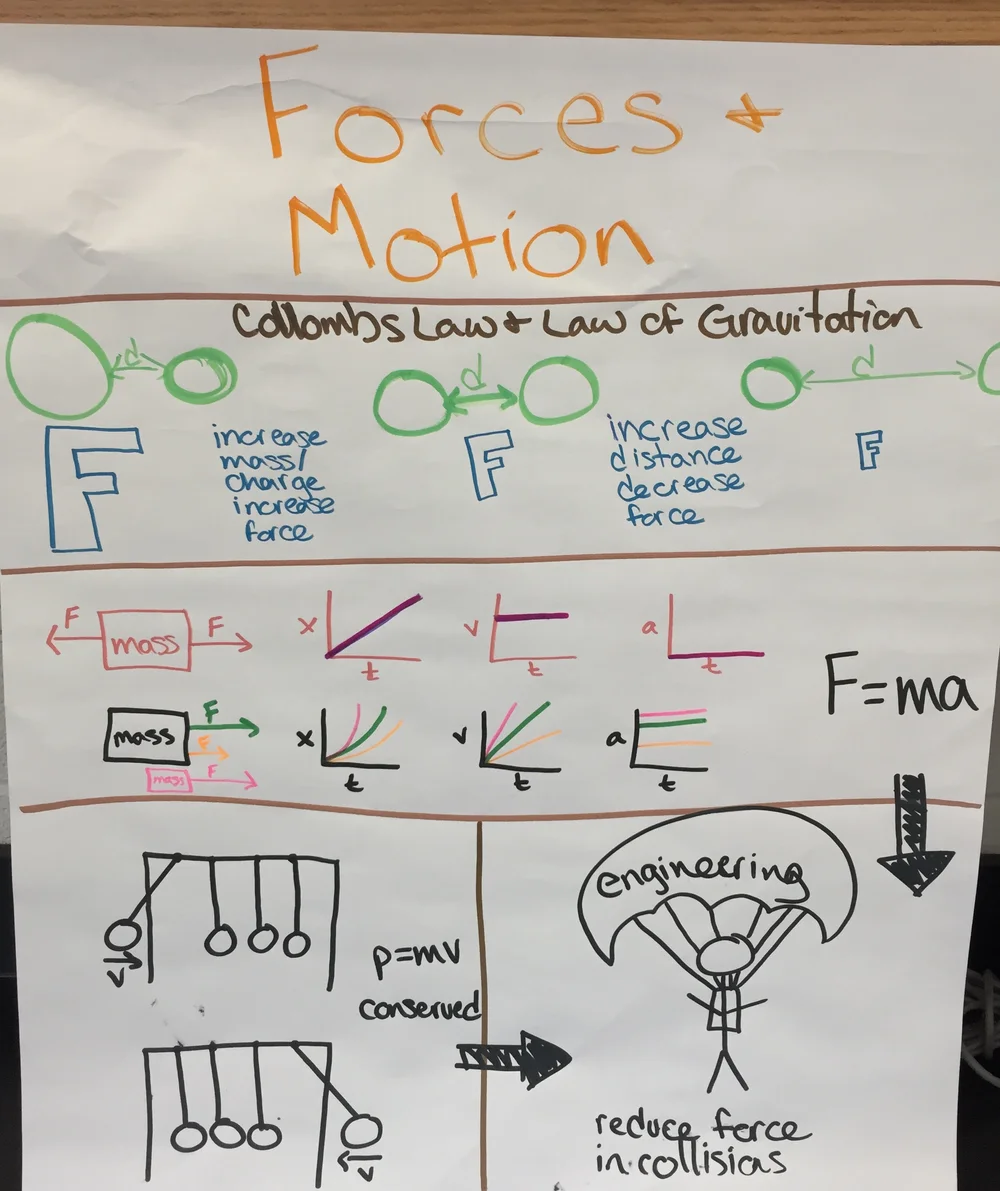 Forces +
Motion
Collombs Law + Law of Gravitation
d
d
d
F
increase
mass/
charge
increase
force
F
increase
distance
decrease
force
F
F
mass
F
x
t
v
t
a
t
F=ma
mass
F
F
mass
F
x
t
v
t
a
t
v
p=mv
conserved
v
engineering
reduce force
in collisias